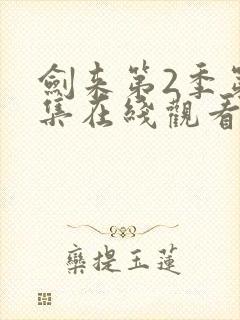 劍來第2季第
集在綫觀看
欒提玉蓮